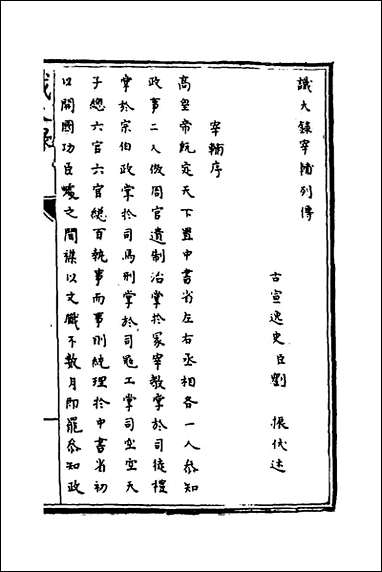 識大錄宰輔列傳
古宣逸史臣劉 振伏述
宰輔序
高皇帝既定天下置中書省左右丞相各一人參知
政事二人倣周官遺制治掌於冢宰教掌於司徒禮
掌於宗伯政掌於司馬刑掌於司寇工掌司空空天
子總六官六官總百執事而事則統理於中書省初
以開國功臣爕之間襍以文職不數月即罷參知政